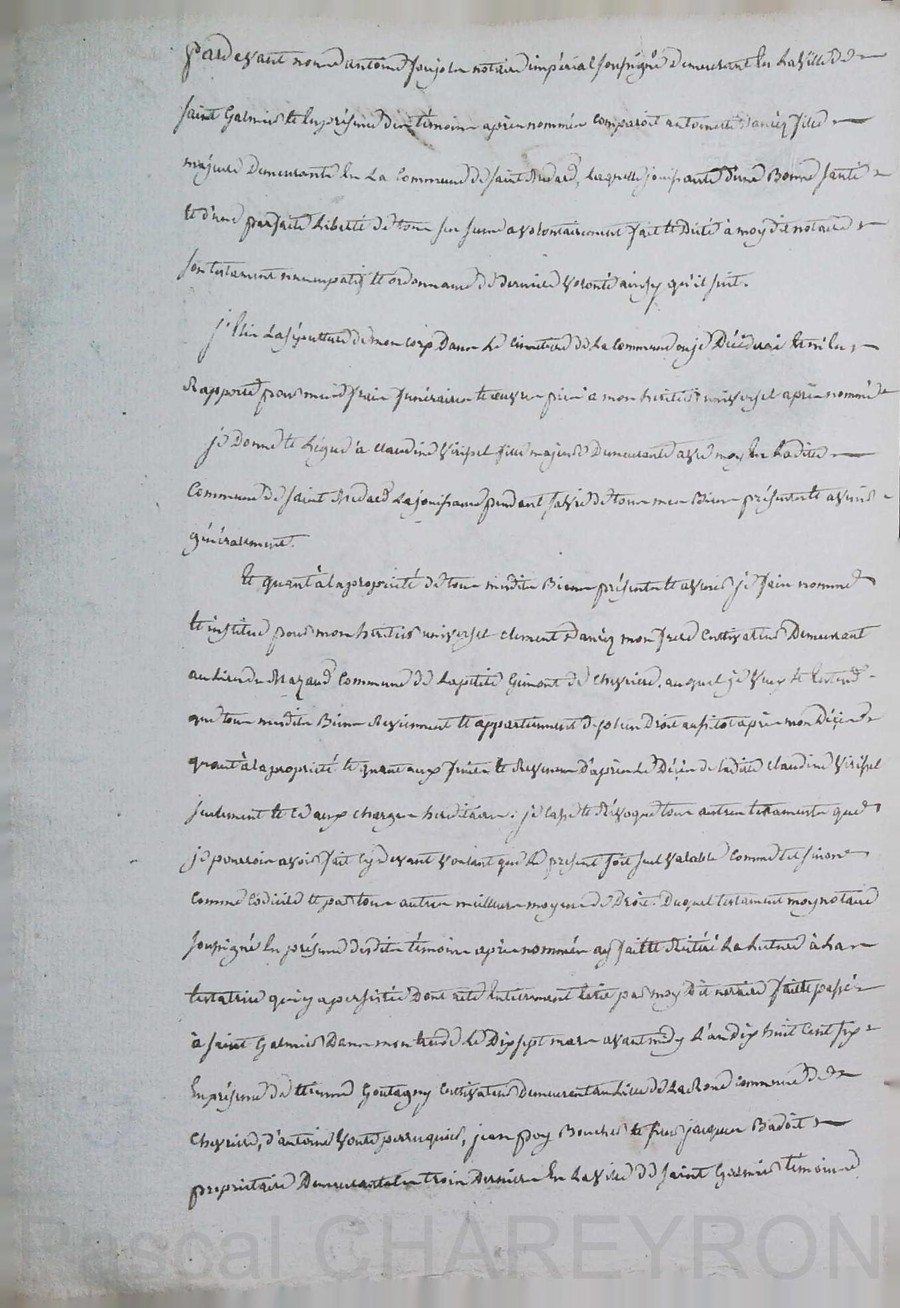 Pardevant nous antoine foujols notaire impérial soussigné demeurant en la ville de
saint Galmier et en présence des témoins après nommés comparoit antoinette fille
majeure demeurante en la commune de saint Médard, laquelle jouissante d'une bonne santé
et d'une parfaite liberté de tous ses sens a volontairement fait et dicté à moy dit notaire
son testament nuncupatif et ordonnance de dernière volonté ainsy qu'il suit.
j'élis la sépulture de mon corps dans le cimetière de la commune ou je décéderai et m'en
rapporte pour mes frais funéraires et œuvres pies a mon héritier universel après nommé
je donne et lègue à claudine Virissel fille majeure demeurante avec moy en ladite
commune de saint Médard la jouissance pendant sa vie de tous mes biens présents et avenir
généralement.
Et quant à la propriété de tous mesdits biens présents et avenir je fais nomme
et institue pour mon héritier universel clement mon frère cultivateur demeurant
au lieu du Mazaud commune de Lapitié Gimont de chevrière, auquel je veux et entend
que tous mesdits biens reviennent et appartiennent de plein droit aussitot après mon décès
quant à la propriété et quant aux fruits et revenus d'après le décès de ladite claudine Virissel
seulement et ce aux charges héréditaires : je casse et révoque tous autres testaments que
je pourrois avoir fait cy devant voulant que le présent soit seul valable comme tel sinon
comme codicile et par tous autres meilleurs moyens de droit. Duquel testament moy notaire
soussigné en présence desdits témoins après nommés ay fait et réitéré la lecture à la
testatrice qui y a persisté dont acte entièrement écrit par moy dit notaire fait et passé
à saint Galmier dans mon étude le dix sept mars avant midy l'an dix huit cent six
En présence de etienne Goutagny cultivateur demeurant au lieu de La Rone commune de
chevrière, d'antoine Voute perruquier, jean poy boucher et jacques Badoit
propriétaire demeurants les trois derniers en la ville de saint Galmier témoins
Pascal CHAREYRON